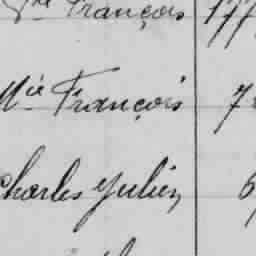 François 177
Mie François 7
Charles Julien 6